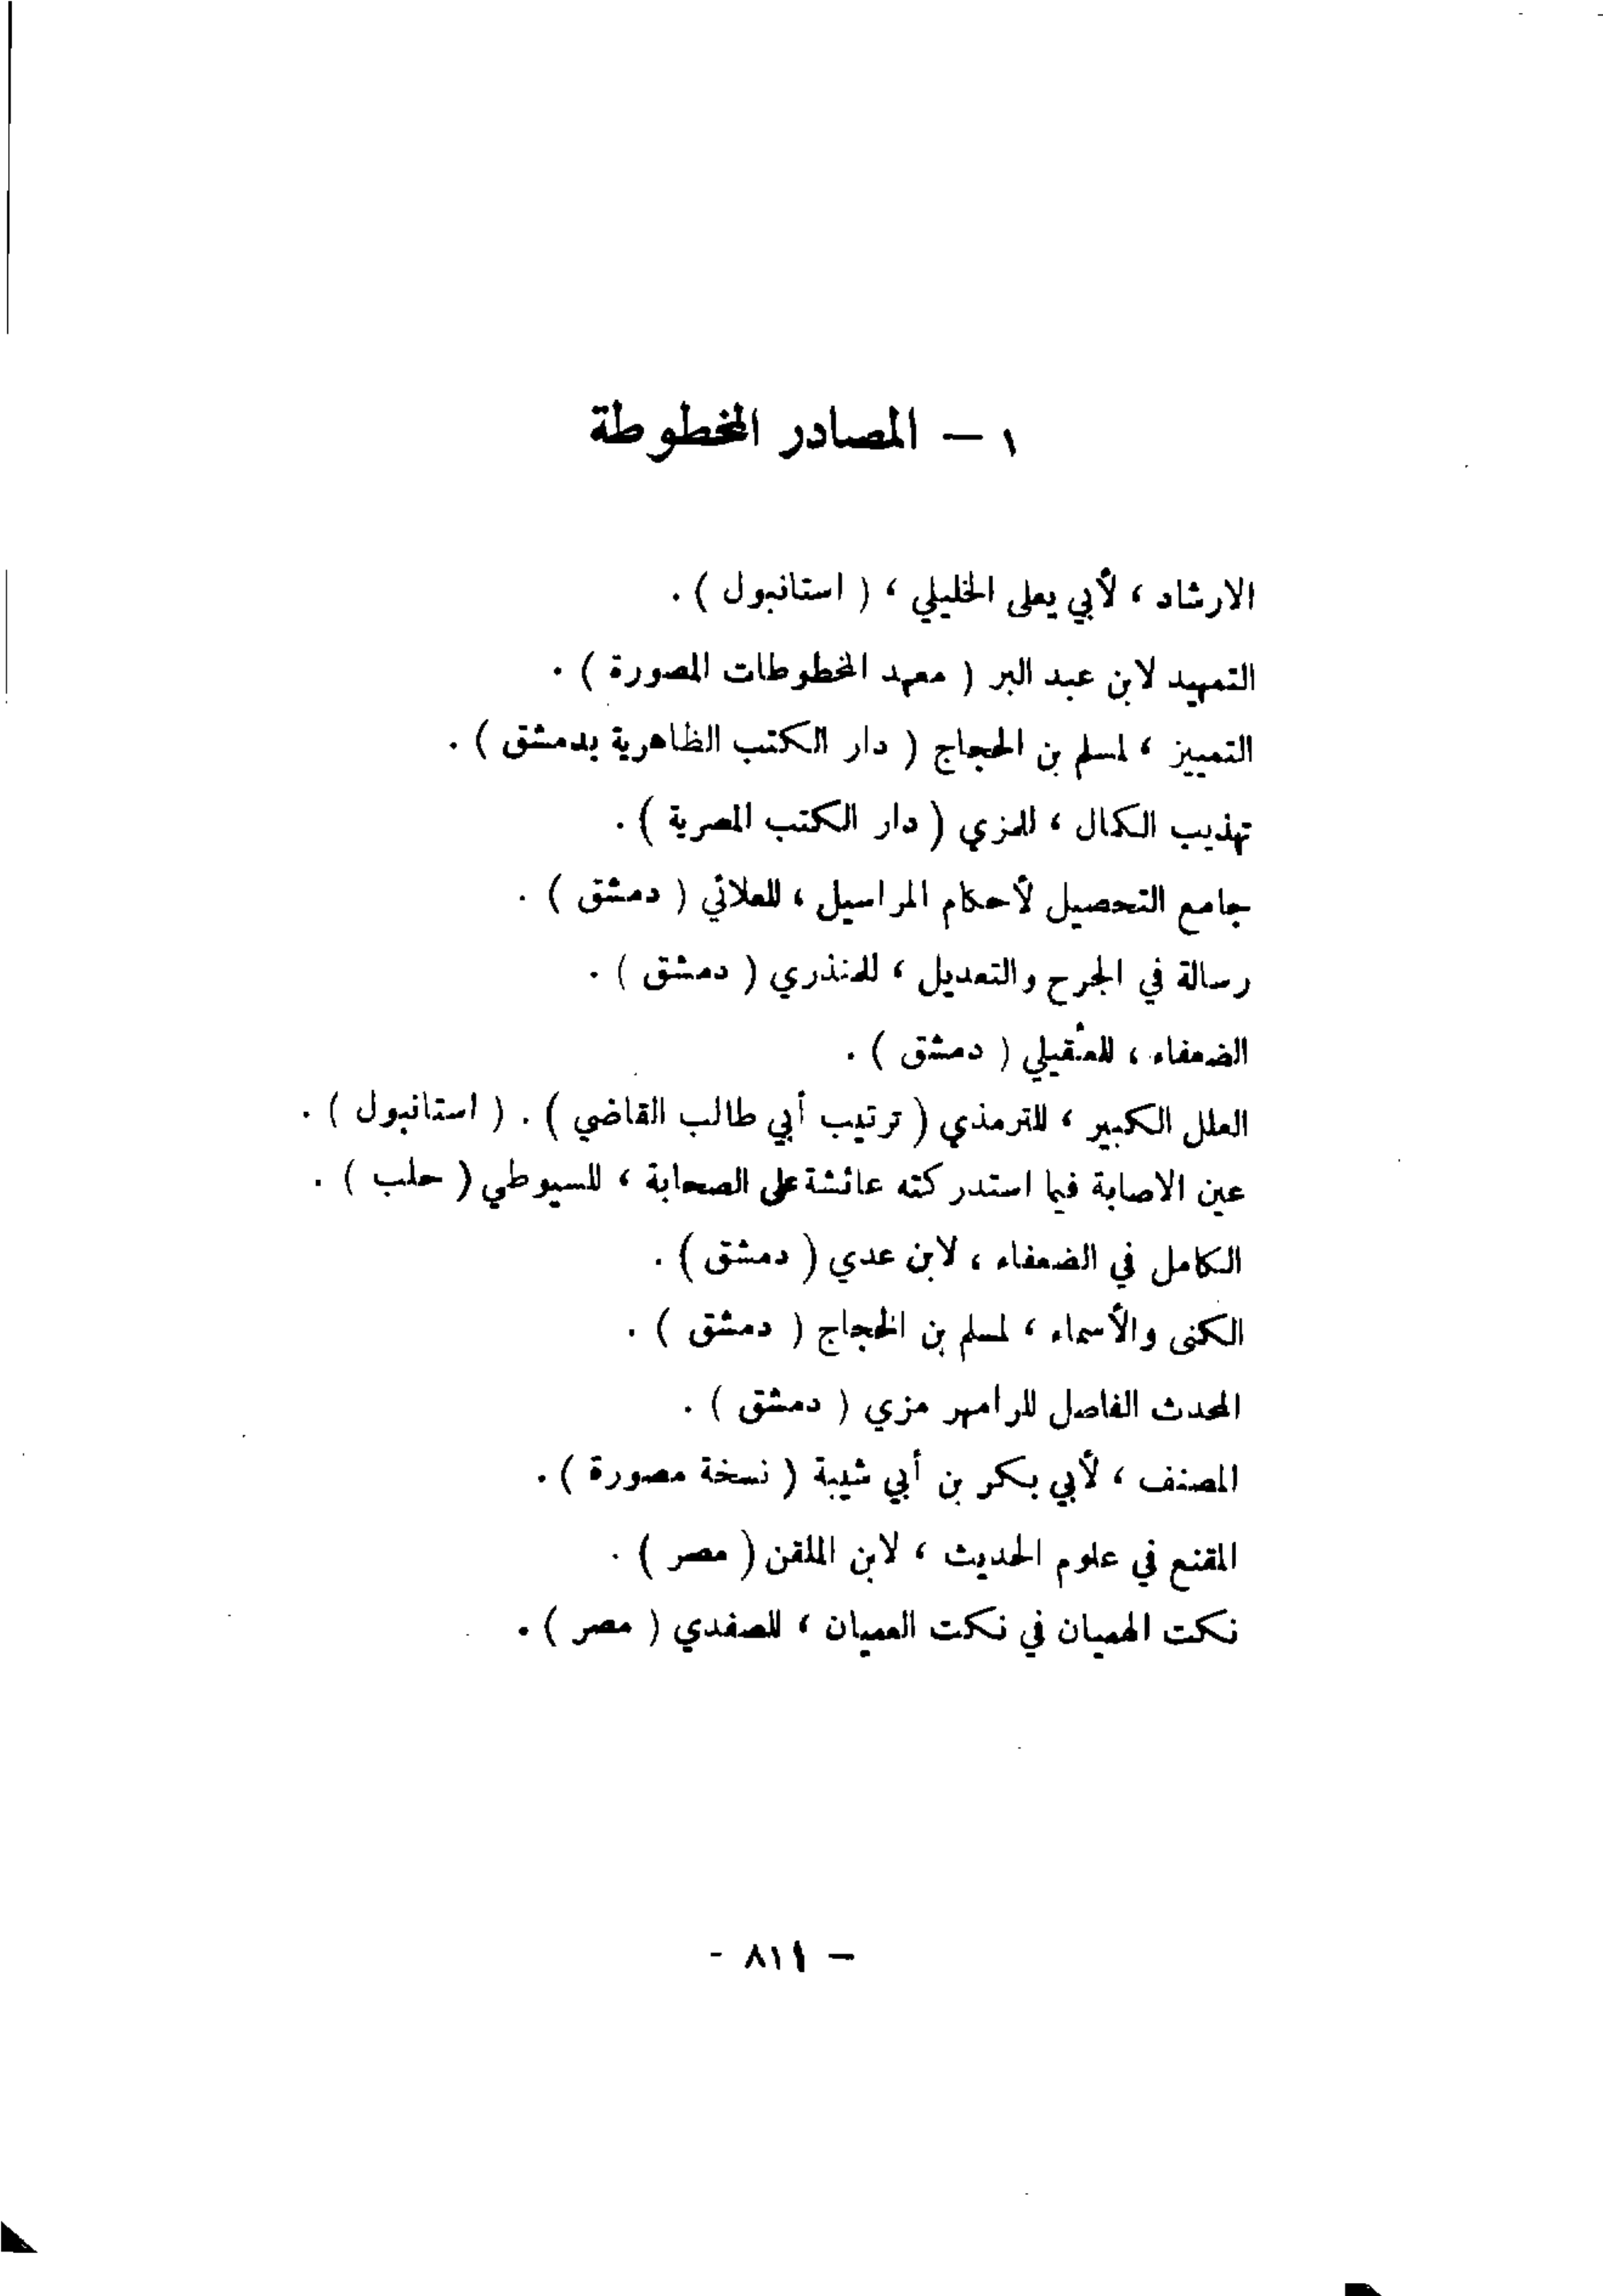 ١ – المصادر المخطوطة
الارشاد ، لأبي يعلى الخليلي ، ( استانبول ) .
التمهيد لابن عبد البر ( معهد المخطوطات المصورة ) .
التمييز ، لمسلم بن الحجاج ( دار الكتب الظاهرية بدمشق ) .
تهذيب الكمال ، للمزي ( دار الكتب المصرية ) .
جامع التحصيل لأحكام المراسيل ، للعلائي ( دمشق ) .
رسالة في الجرح والتعديل ، للمنذري ( دمشق ) .
الضعفاء ، للعُقيلي ( دمشق ) .
العلل الكبير ، للترمذي ( ترتيب أبي طالب القاضي ) . ( استانبول ) .
عين الاصابة فيما استدركته عائشة على الصحابة ، للسيوطي ( حلب ) .
الكامل في الضعفاء ، لابن عدي ( دمشق ) .
الكنى والأسماء ، لمسلم بن الحجاج ( دمشق ) .
المحدث الفاصل للرامهرمزي ( دمشق ) .
المصنف ، لأبي بكر بن أبي شيبة ( نسخة مصورة ) .
المقنع في علوم الحديث ، لابن الملقن ( مصر ) .
نكت الهميان في نكت العميان ، للصفدي ( مصر ) .
– ٨١١ -